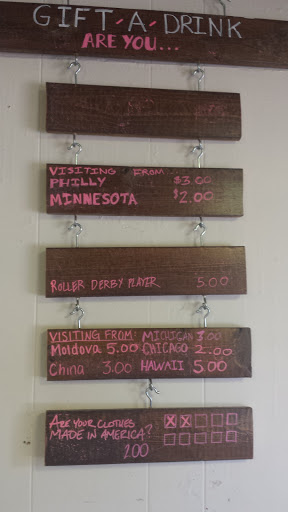 GIFT-A-DRINK
ARE YOU...
VISITING FROM
PHILLY $3.00
MINNESOTA $2.00
ROLLER DERBY PLAYER 5.00
VISITING FROM: MICHIGAN 3.00
Moldova 5.00 CHICAGO 2.00
China 3.00 HAWAII 5.00
ARE YOUR CLOTHES
MADE IN AMERICA?
2.00